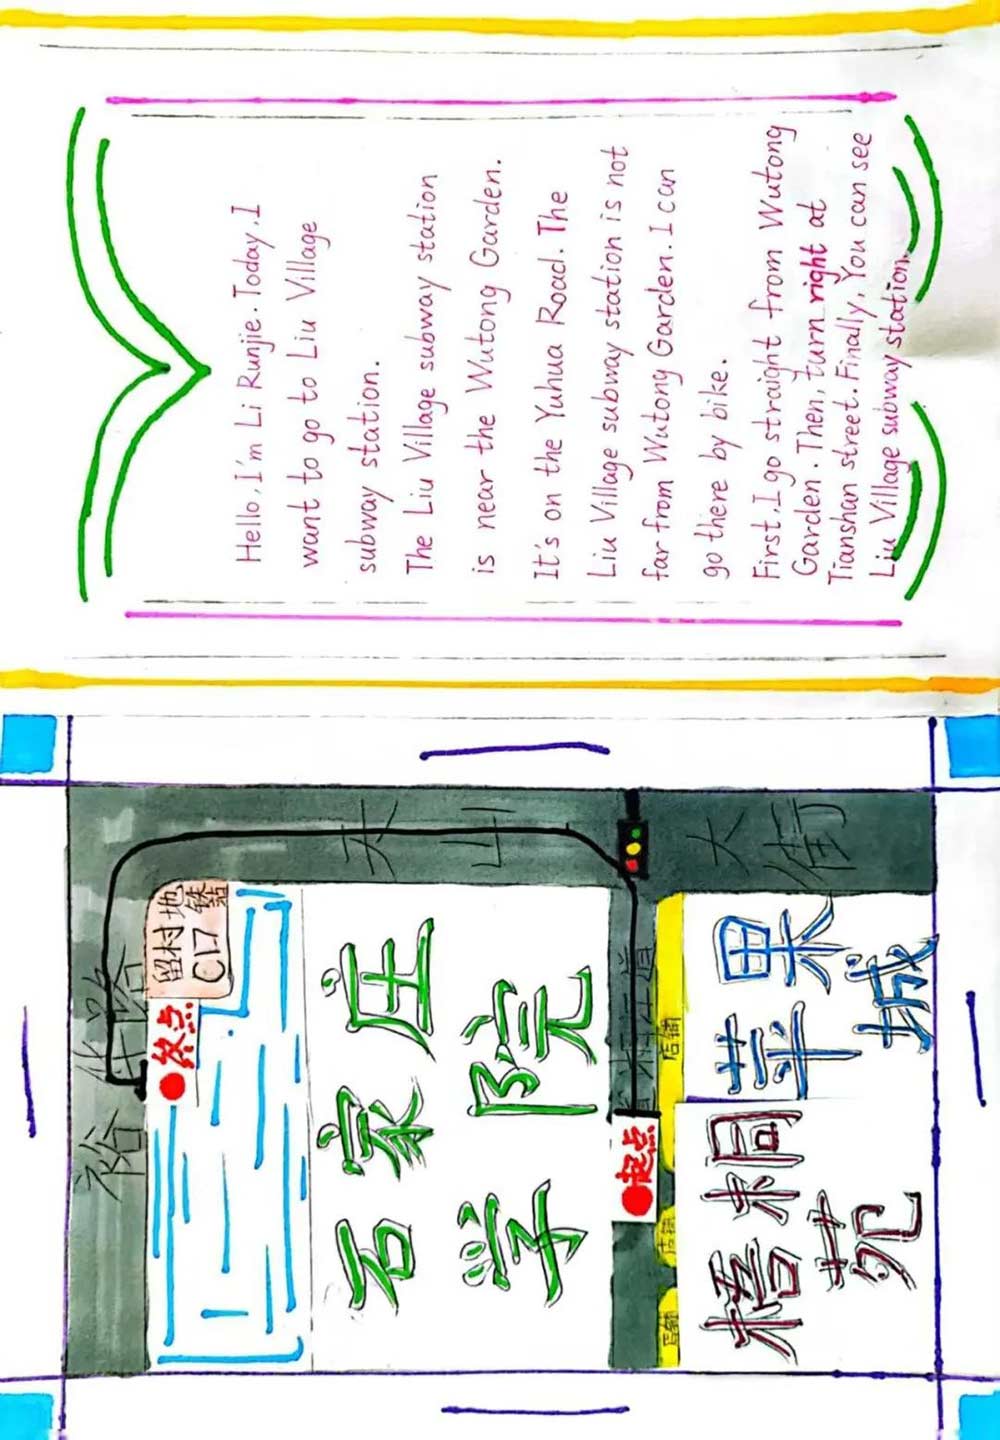 Hello, I'm Li Runjie. Today, I
want to go to Liu Village
subway station.
The Liu Village subway station
is near the Wutong Garden.
It's on the Yuhua Road. The
Liu Village subway station is not
far from Wutong Garden. I can
go there by bike.
First, I go straight from Wutong
Garden. Then, turn right at
Tianshan street. Finally, You can see
Liu Village subway station.
裕华路
留村地
铁站
C口
终点
天山大街
石家庄
学院
起点
店铺
店铺
店铺
苹果
城
梧桐
苑